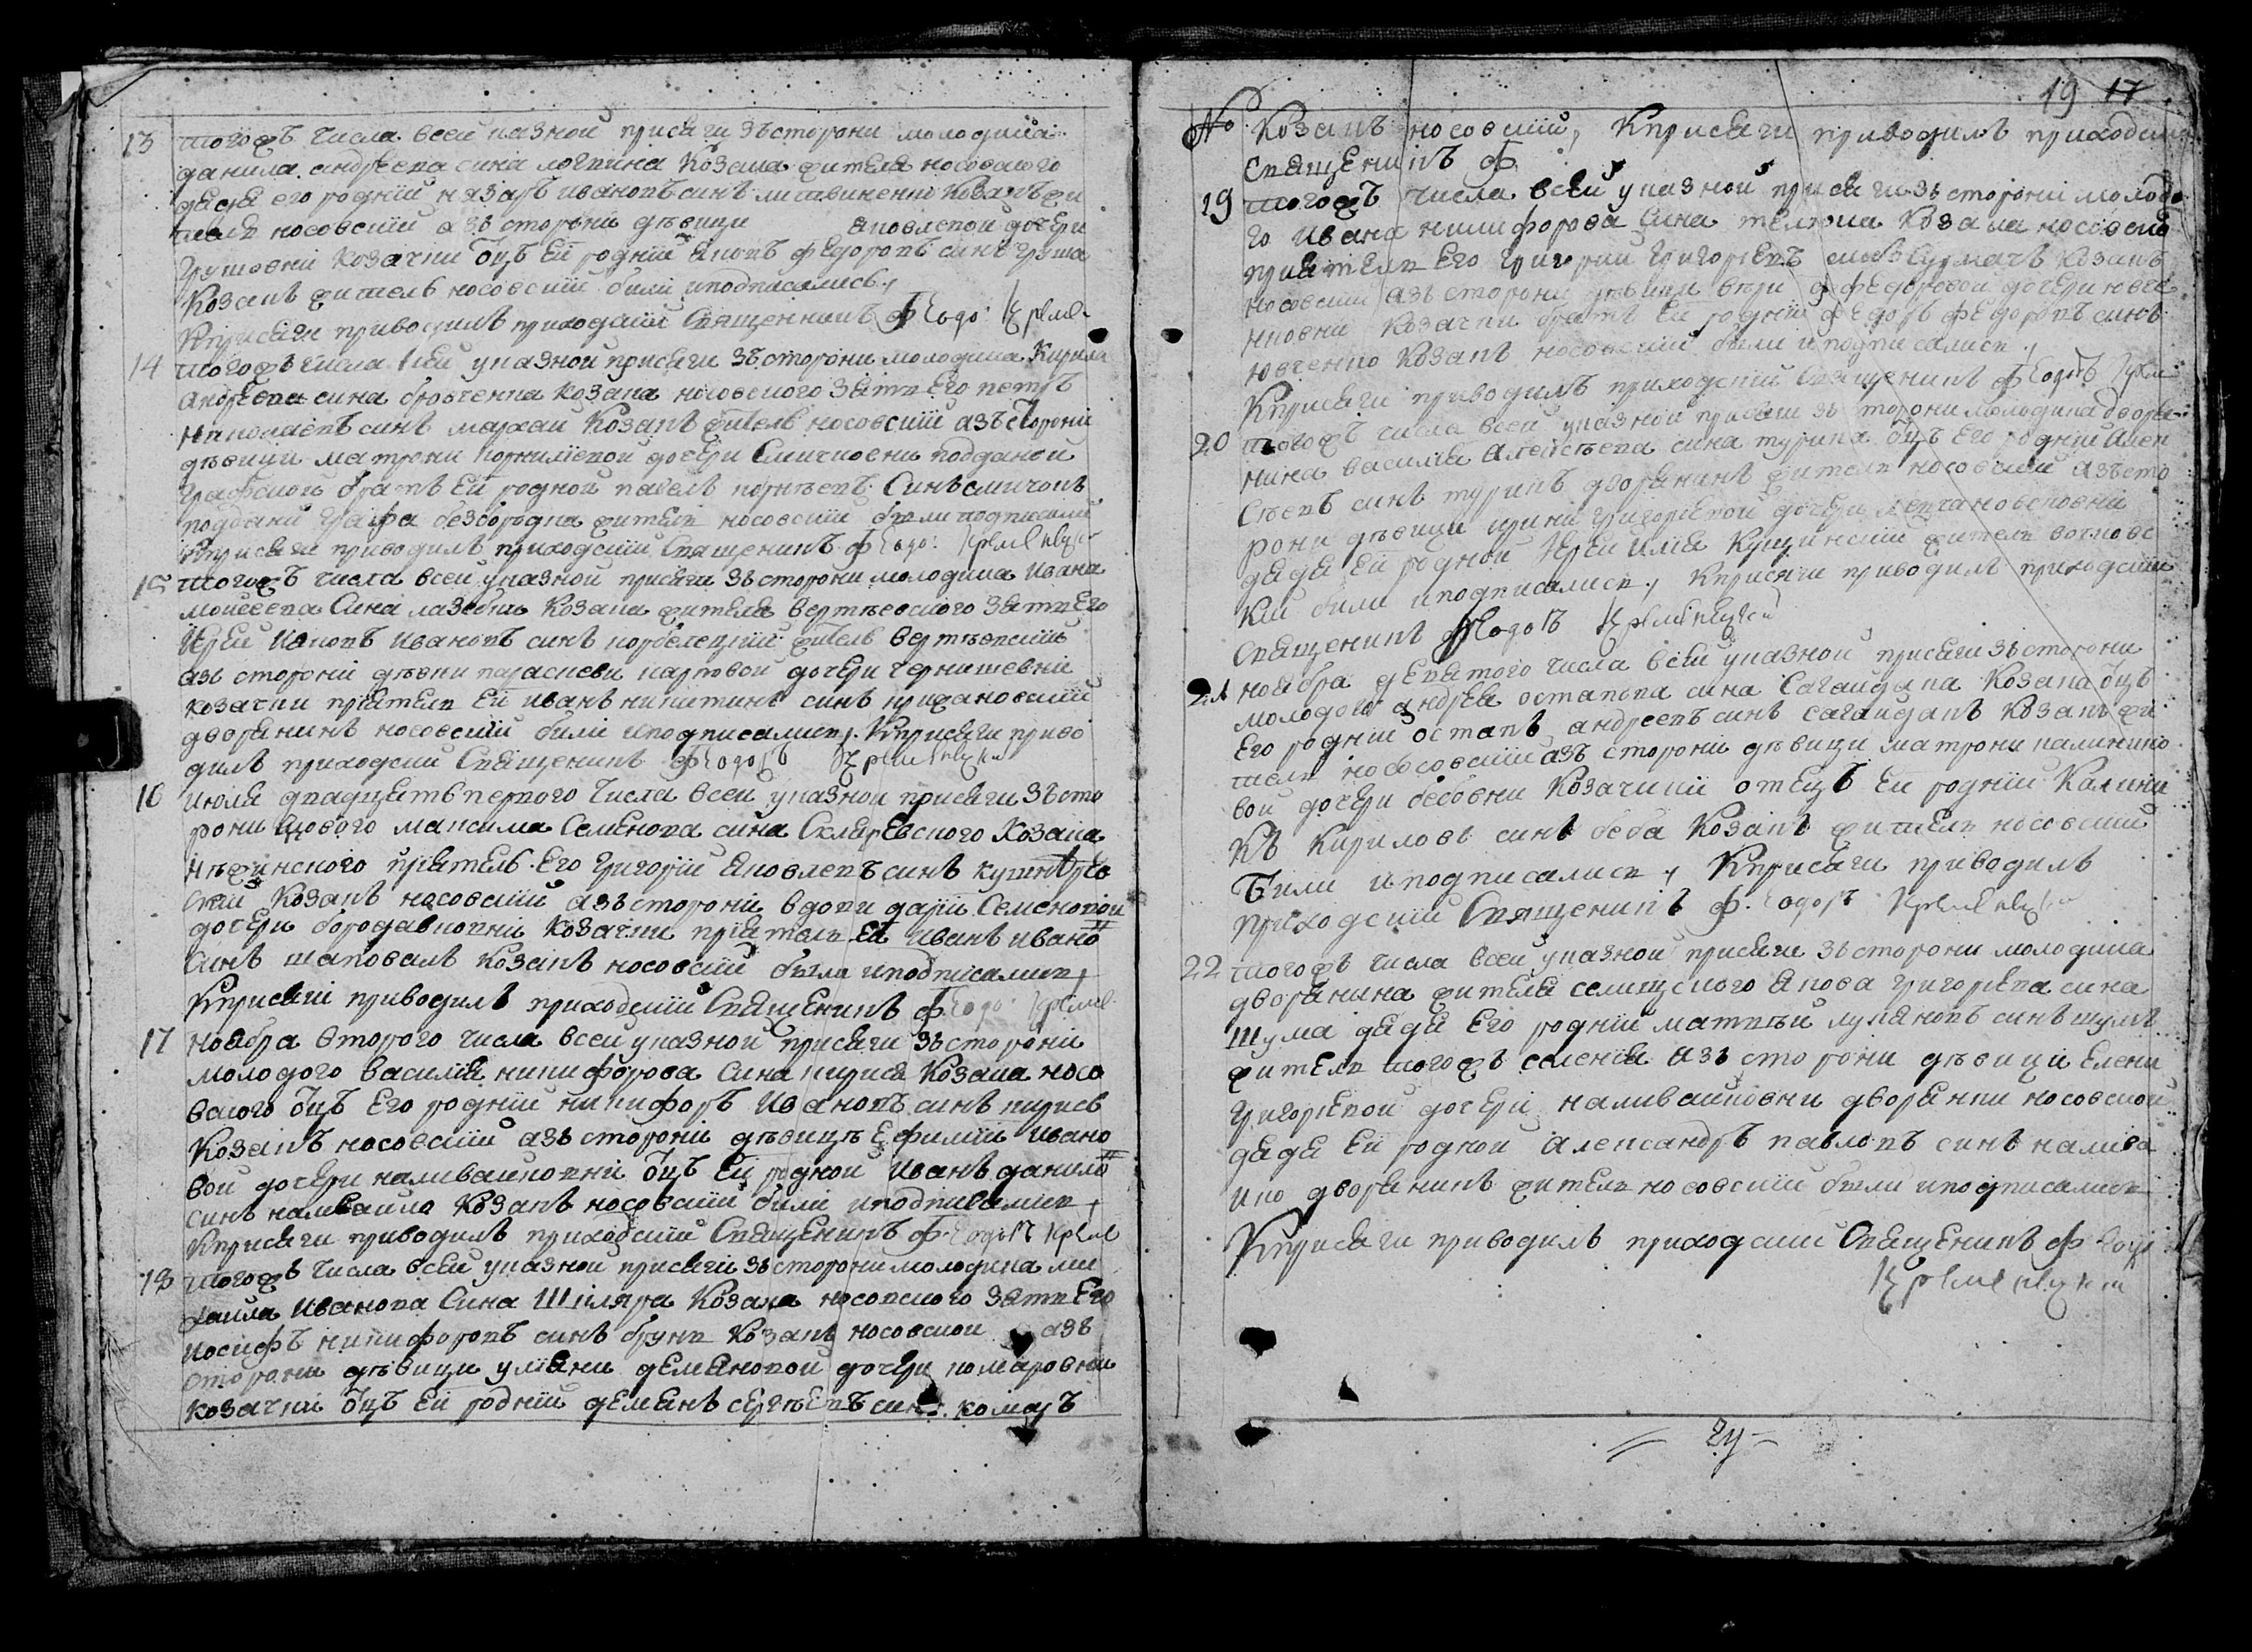 13 тогожъ числа всей указной присяги зъ сторони молодика
данила андреева сина логвина козака жителя носовского
дядя его родній назаръ ивановъ синъ литвиненко козакъ жи
тель носовскій а зъ сторони дѣвици яковлевой дочери
грушовни козачки оцъ ей родній яковъ федоровъ синъ груша
козакъ житель носовскій били и подписались,
К присяги приводилъ приходскій священникъ феодо: Креме
14 тогожъ числа всей указной присяги зъ сторони молодика кирила
андреева сина бровченка козака носовского зять его петръ
николаевъ синъ махай козакъ житель носовскій а зъ сторони
дѣвици матрони корнилієвой дочери смичковни подданой
графской братъ ей родной павелъ корнѣевъ синъ смичокъ
поддани графа безбородка житель носовскій били подписались
К присяги приводилъ приходскій священикъ феодо: Кременецкій
15 тогожъ числа всей указной присяги зъ сторони молодика ивана
моисеева сина лазебни козака жителя вертѣевского зять его
иерей иаковъ ивановъ синъ корбелецкій житель вертѣевскій
а зъ сторони дѣвки параскеви карповой дочери чернишевни
козачки пріятель ей иванъ никитинъ синъ крижановскій
дворянинъ носовскій били и подписались. К присяги приво
дилъ приходскій священикъ феодоръ Кременецкій
16 июля двадцять первого числа всей указной присяги зъ сто
рони вдового максима семенова сина скляревского козака
нѣжинского пріятель его григорій яковлевъ синъ
скій козакъ носовскій а зъ сторони вдови даріи семеновой
дочери бородавковни козачки пріятель ей иванъ ивано
синъ шаповалъ козакъ носовскій были и подписались,
К присяги приводилъ приходскій священикъ феодо: Креме
17 ноября второго числа всей указной присяги зъ сторони
молодого василія никифорова сина кирися козака носо
вского оцъ его родній никифоръ ивановъ синъ кирись
козакъ носовскій а зъ сторони дѣвицѣ ефиміи ивано
вой дочери наливайковни оцъ ей родной иванъ данило
синъ наливайко козакъ носовскій били и подписались,
К присяги приводилъ приходскій священикъ феодоръ Креме
18 тогожъ числа всей указной присяги зъ сторони молодика ми
хаила иванова сина шкляра козака носовского зять его
иосифъ никифоровъ синъ бруяк козакъ носовской а зъ
сторони дѣвици уляни демяновой дочери комаровни
козачки оцъ ей родній демянъ сергѣевъ синъ комаръ
19 17
№ козакъ носовскій, К присяги приводилъ приходски
священикъ ф
19 тогожъ числа всей указной присяги зъ сторони молодо
го ивана никифорова сина козака носовско
пріятель его григорій григорієвъ козакъ
носовскій а зъ сторони дѣвици федоровой дочери ювче
нковни козачки братъ ей родній федоръ федоровъ синъ
ювченко козакъ носовскій били и подписались,
К присяги приводилъ приходскій священикъ феодоръ Креме
20 тогожъ числа всей указной присяги зъ сторони молодика дворя
нина василія алексѣева сина турика оцъ его родній алек
сѣевъ синъ турикъ дворянинъ житель носовскій а зъ сто
рони дѣвици ирини григорієвой дочери
дядя ей родной иерей илія кущинскій житель
кій били и подписались, К присяги приводилъ приходскій
священикъ феодоръ Кременецкій
21 ноября девятого числа всей указной присяги зъ сторони
молодого андрея остапова сина сагайдака козака оцъ
его родній остапъ андреевъ синъ сагайдакъ козакъ жи
тель нососовскій а зъ сторони дѣвици матрони калинико
вой дочери бебовни козачкии отецъ ей родній калини
къ кириловъ синъ беба козакъ житель носовскій
били и подписались, К присяги приводилъ
приходскій священикъ феодоръ Кременецкій
22 тогожъ числа всей указной присяги зъ сторони молодика
дворянина жителя селищского якова григорієва сина
шума дядя его родній матвѣй лукяновъ синъ шумъ
житель тогожъ селенія а зъ сторони дѣвици елени
григорієвой дочери наливайковни дворянки носовской
дядя ей родной александръ павловъ синъ налива
йко дворянинъ житель носовскій были и подписались
К присяги приводилъ приходскій священикъ феодо
Кременецкій